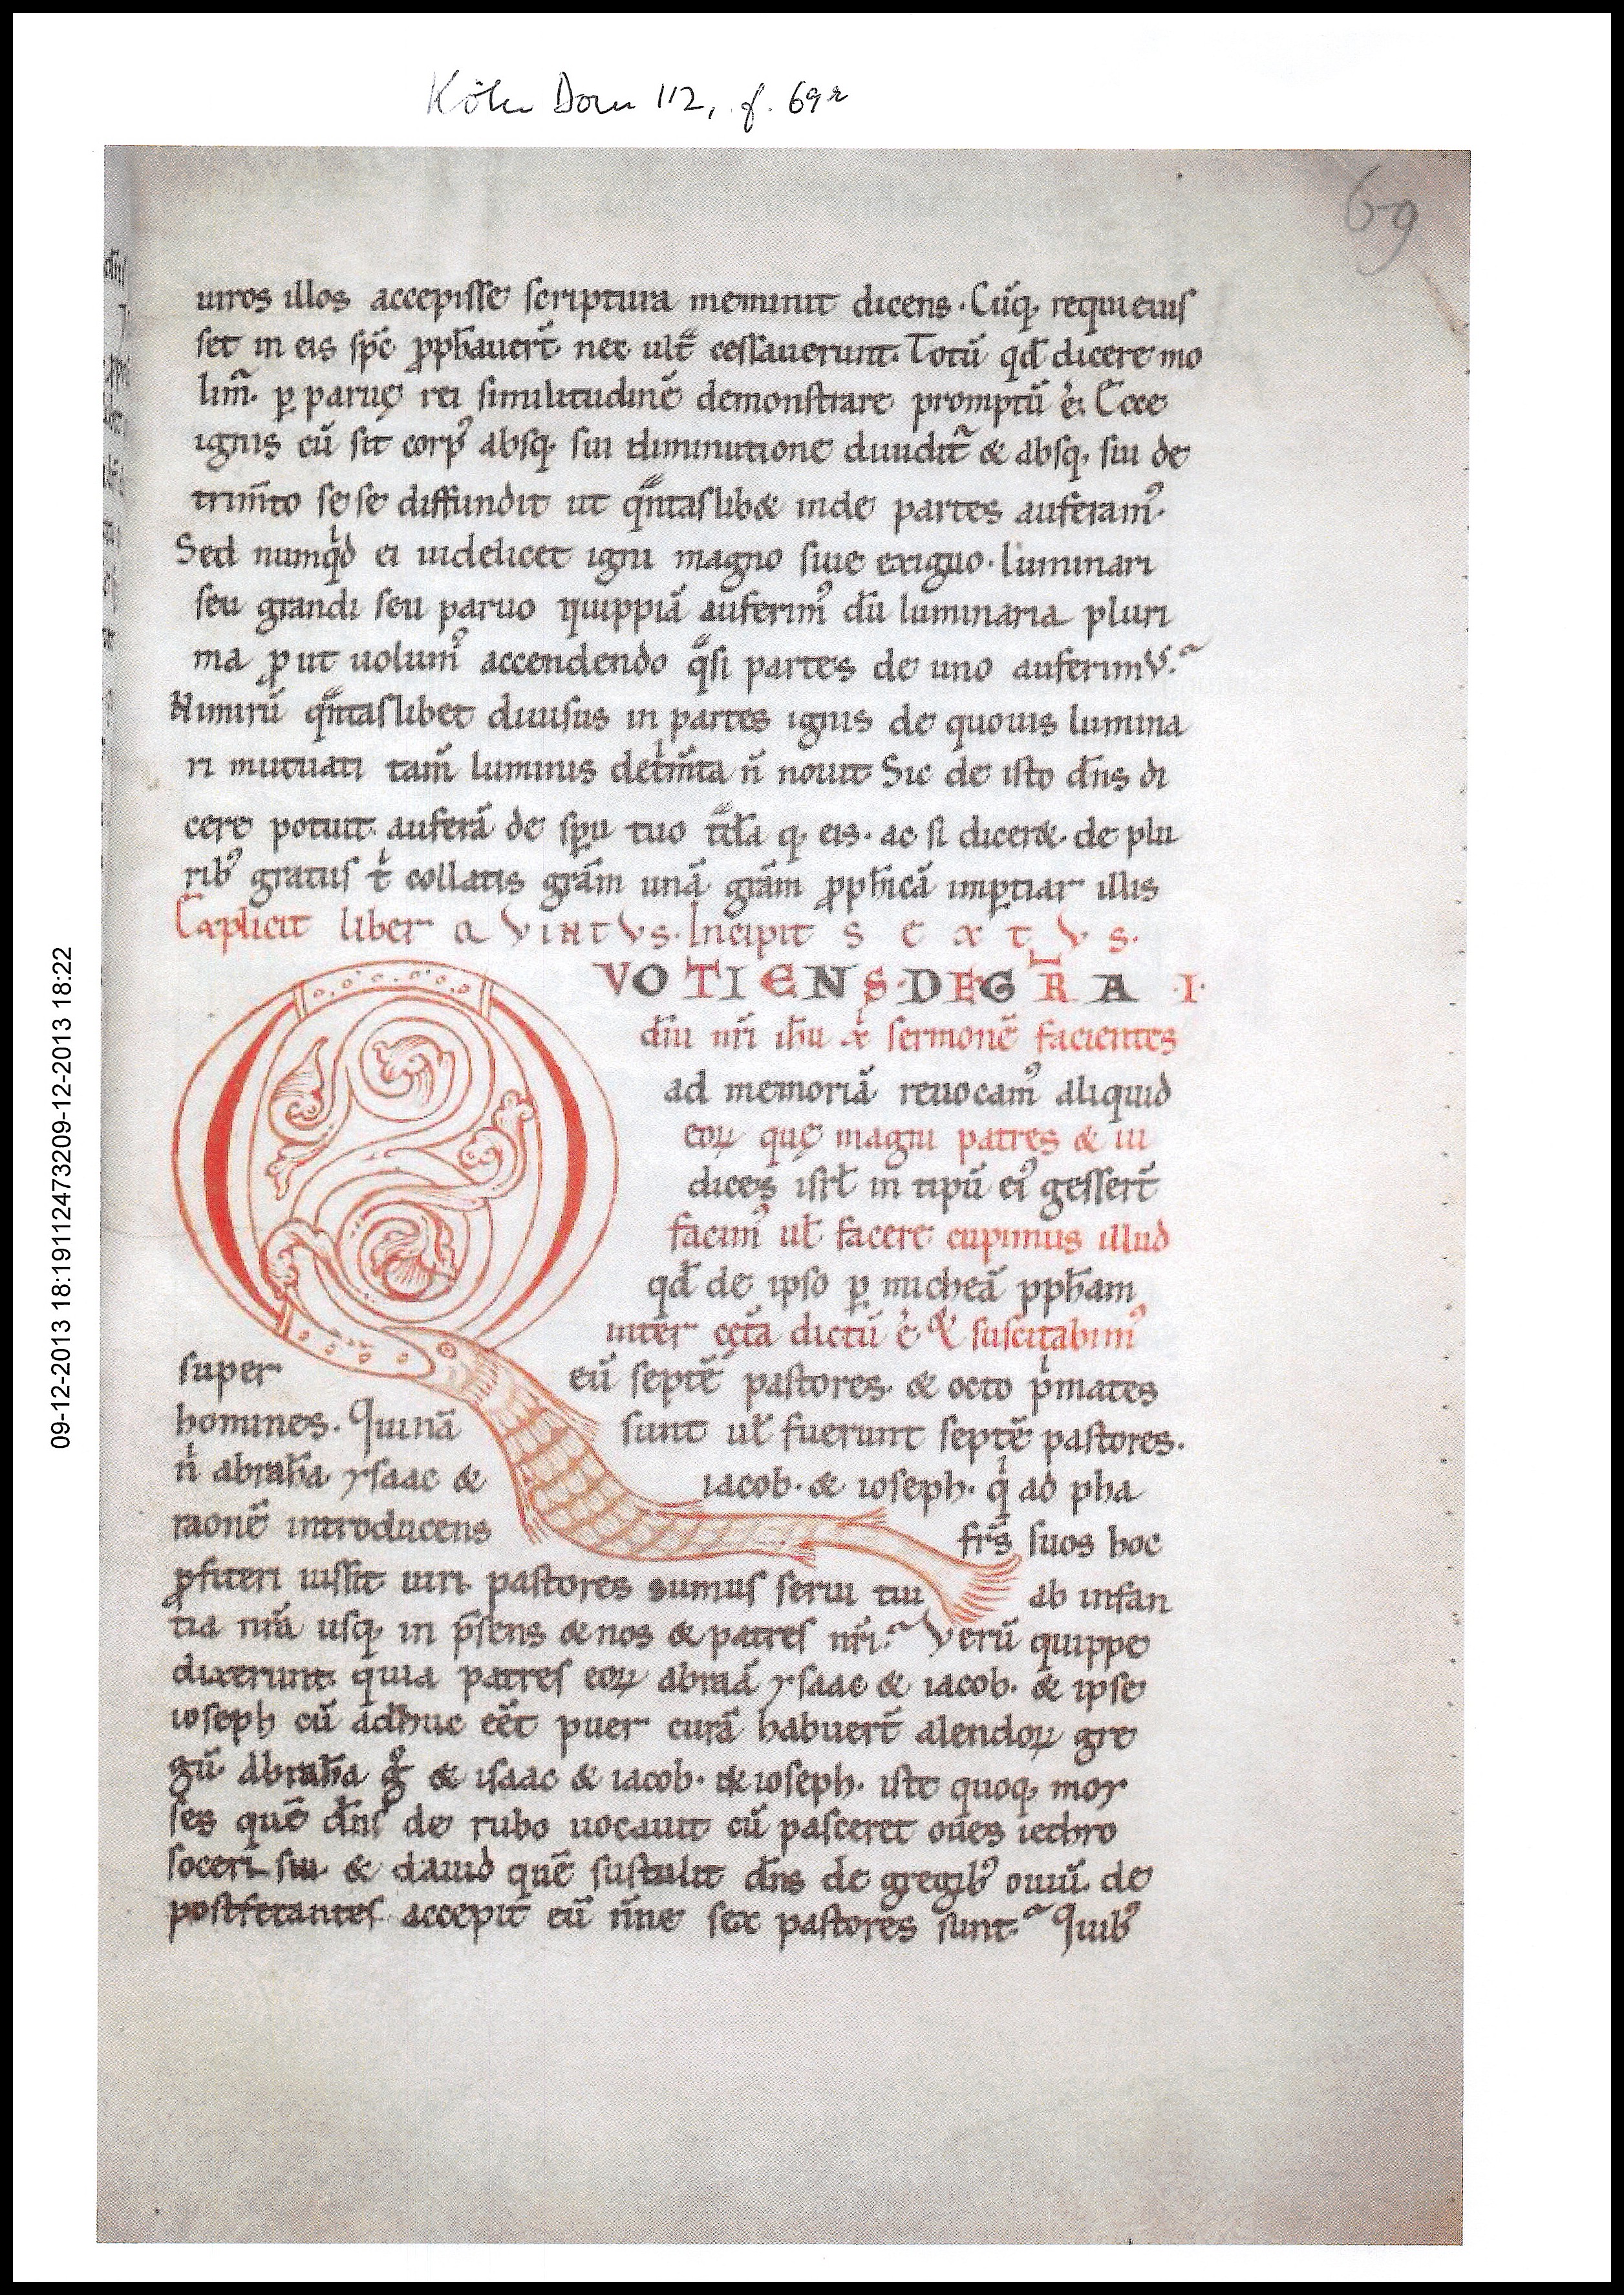 Köln Dom 112, f. 69r
69
uiros illos accepisse scriptura meminit dicens. Cūq; requieuis
set in eis sp̄c ꝓph̄auer̄t nec ult̄ cessauerunt. Totū qd̄ dicere mo
lim̄. ꝑ paruę rei similitudinē demonstrare promptū ē. Ecce
ignis cū sit corpꝰ absq; sui diminutione diuidit᷑ & absq; sui de
trim̄to sese diffundit ut qͣntaslib& inde partes auferamꝰ.
Sed numqͥd ei uidelicet igni magno siue exiguo. luminari
seu grandi seu paruo quippiā auferimꝰ dū luminaria pluri
ma ꝓut uolumꝰ accendendo qͣsi partes de uno auferimus.
Nimirū qͣntaslibet diuisus in partes ignis de quouis lumina
ri mutuati tam̄ luminis detͥm̄ta n̄ nouit Sic de isto dn̄s di
cere potuit. auferā de sp̄u tuo tͣd̄a q; eis. ac si dicer&. de plu
ribꝰ gratiis tͥ collatis grām unā grām ꝓph̄icā imꝑtiar illis
Explicit liber QVINTVS. Incipit SEXTVS.
QVOTIENS. DE GR̄A .I.
dn̄i nr̄i ih̄u x̄ sermonē facientes
ad memoriā reuocamꝰ aliquid
eoꝝ quę magni patres & iu
dices isrl̄ in tipū eiꝰ gesser̄t
facimꝰ ul̄ facere cupimus illud
qd̄ de ipso ꝑ micheā ꝓph̄am
inter cęt̄a dictū ē & suscitabimꝰ
super eū septē pastores. & octo pͥmates
homines. Quinā sunt ul̄ fuerunt septē pastores.
nͥ abrah̄a ysaac & iacob. & ioseph. qͥ ad pha
raonē introducens fr̄s suos hoc
ꝓfiteri iussit uiri pastores sumus serui tui ab infan
tia nr̄a usq; in p̄sens & nos & patres nr̄i. Verū quippe
dixerunt. quia patres eoꝝ abraā ysaac & iacob. & ipse
ioseph cū adhuc eēt puer curā habuer̄t alendoꝝ gre
gū. Abrah̄a gͦ & isaac & iacob. & ioseph. iste quoq; moy
ses quē dn̄s de rubo uocauit cū pasceret oues iethro
soceri sui & dauid quē sustulit dn̄s de gregibꝰ ouiū. de
postfetantes accepit eū n̄ne sex pastores sunt. Quibꝰ
09-12-2013 18:1911247320​9-12-2013 18:22